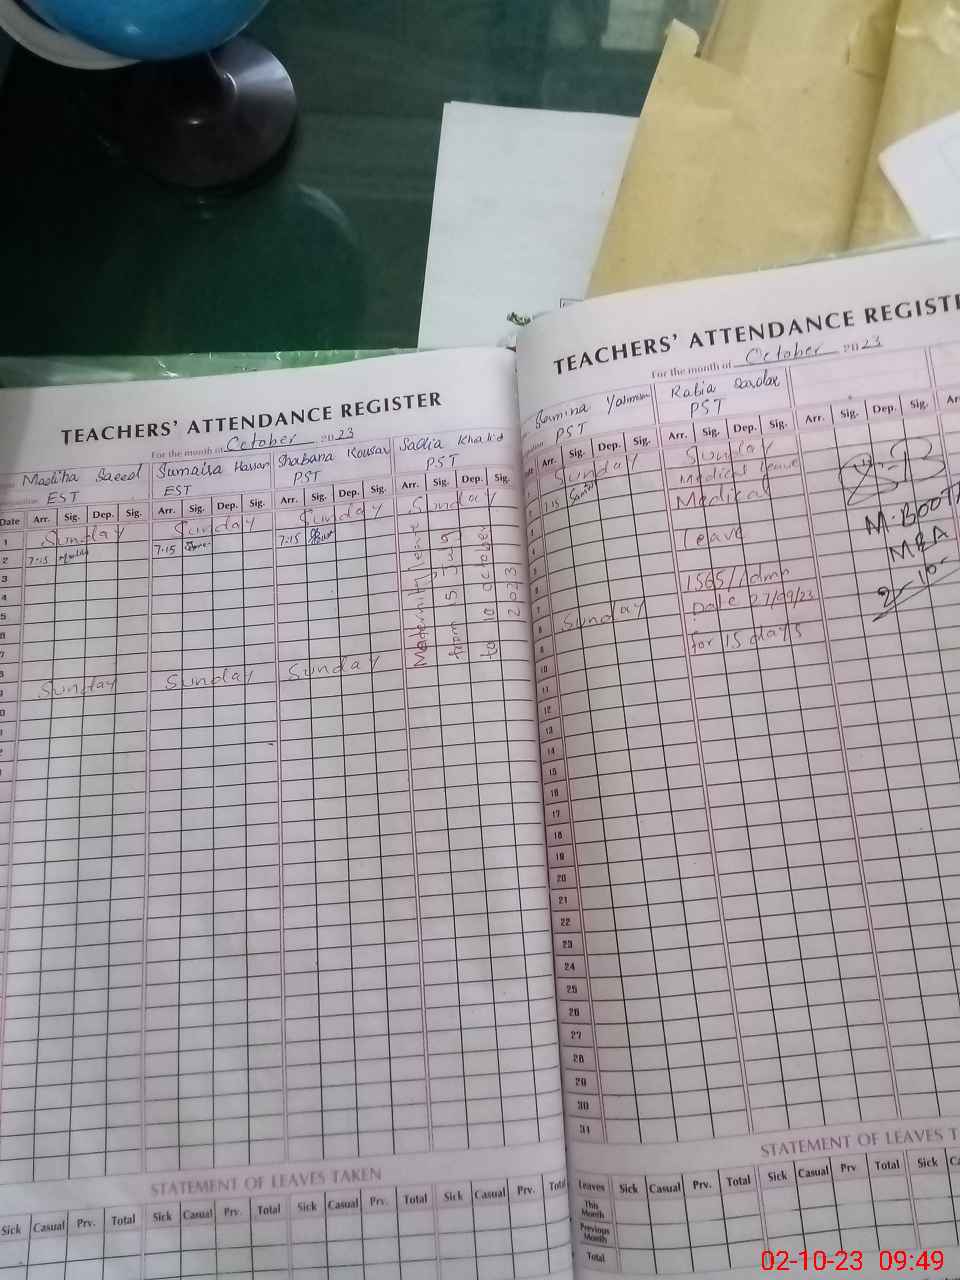 TEACHERS' ATTENDANCE REGISTER
For the month of October 2023
Madiha Saeed Sumaira Hassan Shabana Kousar Sadia Khalid
EST EST PST PST
Date Arr. Sig. Dep. Sig. Arr. Sig. Dep. Sig. Arr. Sig. Dep. Sig. Arr. Sig. Dep. Sig.
1 Sunday Sunday Sunday Sunday
2 7-15 7-15 7-15
3
4
5
6
7
Sunday Sunday Sunday
Maternity leave
from 15 July
to 10 October
2023
STATEMENT OF LEAVES TAKEN
Sick Casual Prv. Total Sick Casual Prv. Total Sick Casual Prv. Total Sick Casual Prv. Total
TEACHERS' ATTENDANCE REGIST
For the month of October 2023
Samina Yasmin Rabia Sardar
PST PST
Arr. Sig. Dep. Sig. Arr. Sig. Dep. Sig. Arr. Sig. Dep. Sig. Ar
Sunday Sunday
7-15 Medical leave
Medical
Leave
1565/Admn
Date 27/09/23
for 15 days
Sunday
M. BOOTA
MEA
2-10-
8
9
10
11
12
13
14
15
16
17
18
19
20
21
22
23
24
25
26
27
28
29
30
31
STATEMENT OF LEAVES T
Leaves Sick Casual Prv Total Sick Casual Prv Total Sick Ca
This Month
Previous Month
Total
02-10-23 09:49